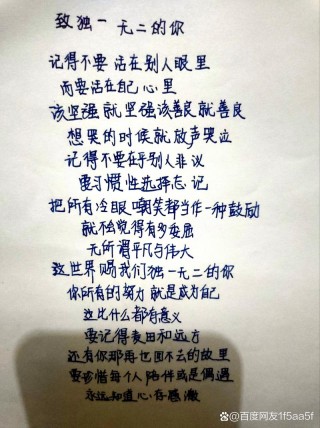 致独一无二的你
记得不要活在别人眼里
而要活在自己心里
该坚强就坚强该善良就善良
想哭的时候就放声哭泣
记得不要在乎别人非议
要习惯性选择忘记
把所有冷眼嘲笑都当作一种鼓励
就不会觉得有多委屈
无所谓平凡与伟大
这世界赐我们独一无二的你
你所有的努力就是成为自己
这比什么都有意义
要记得麦田和远方
还有你那再也回不去的故里
要珍惜每个人陪伴或是偶遇
永远知道心存感激
百度网友1f5aa5f